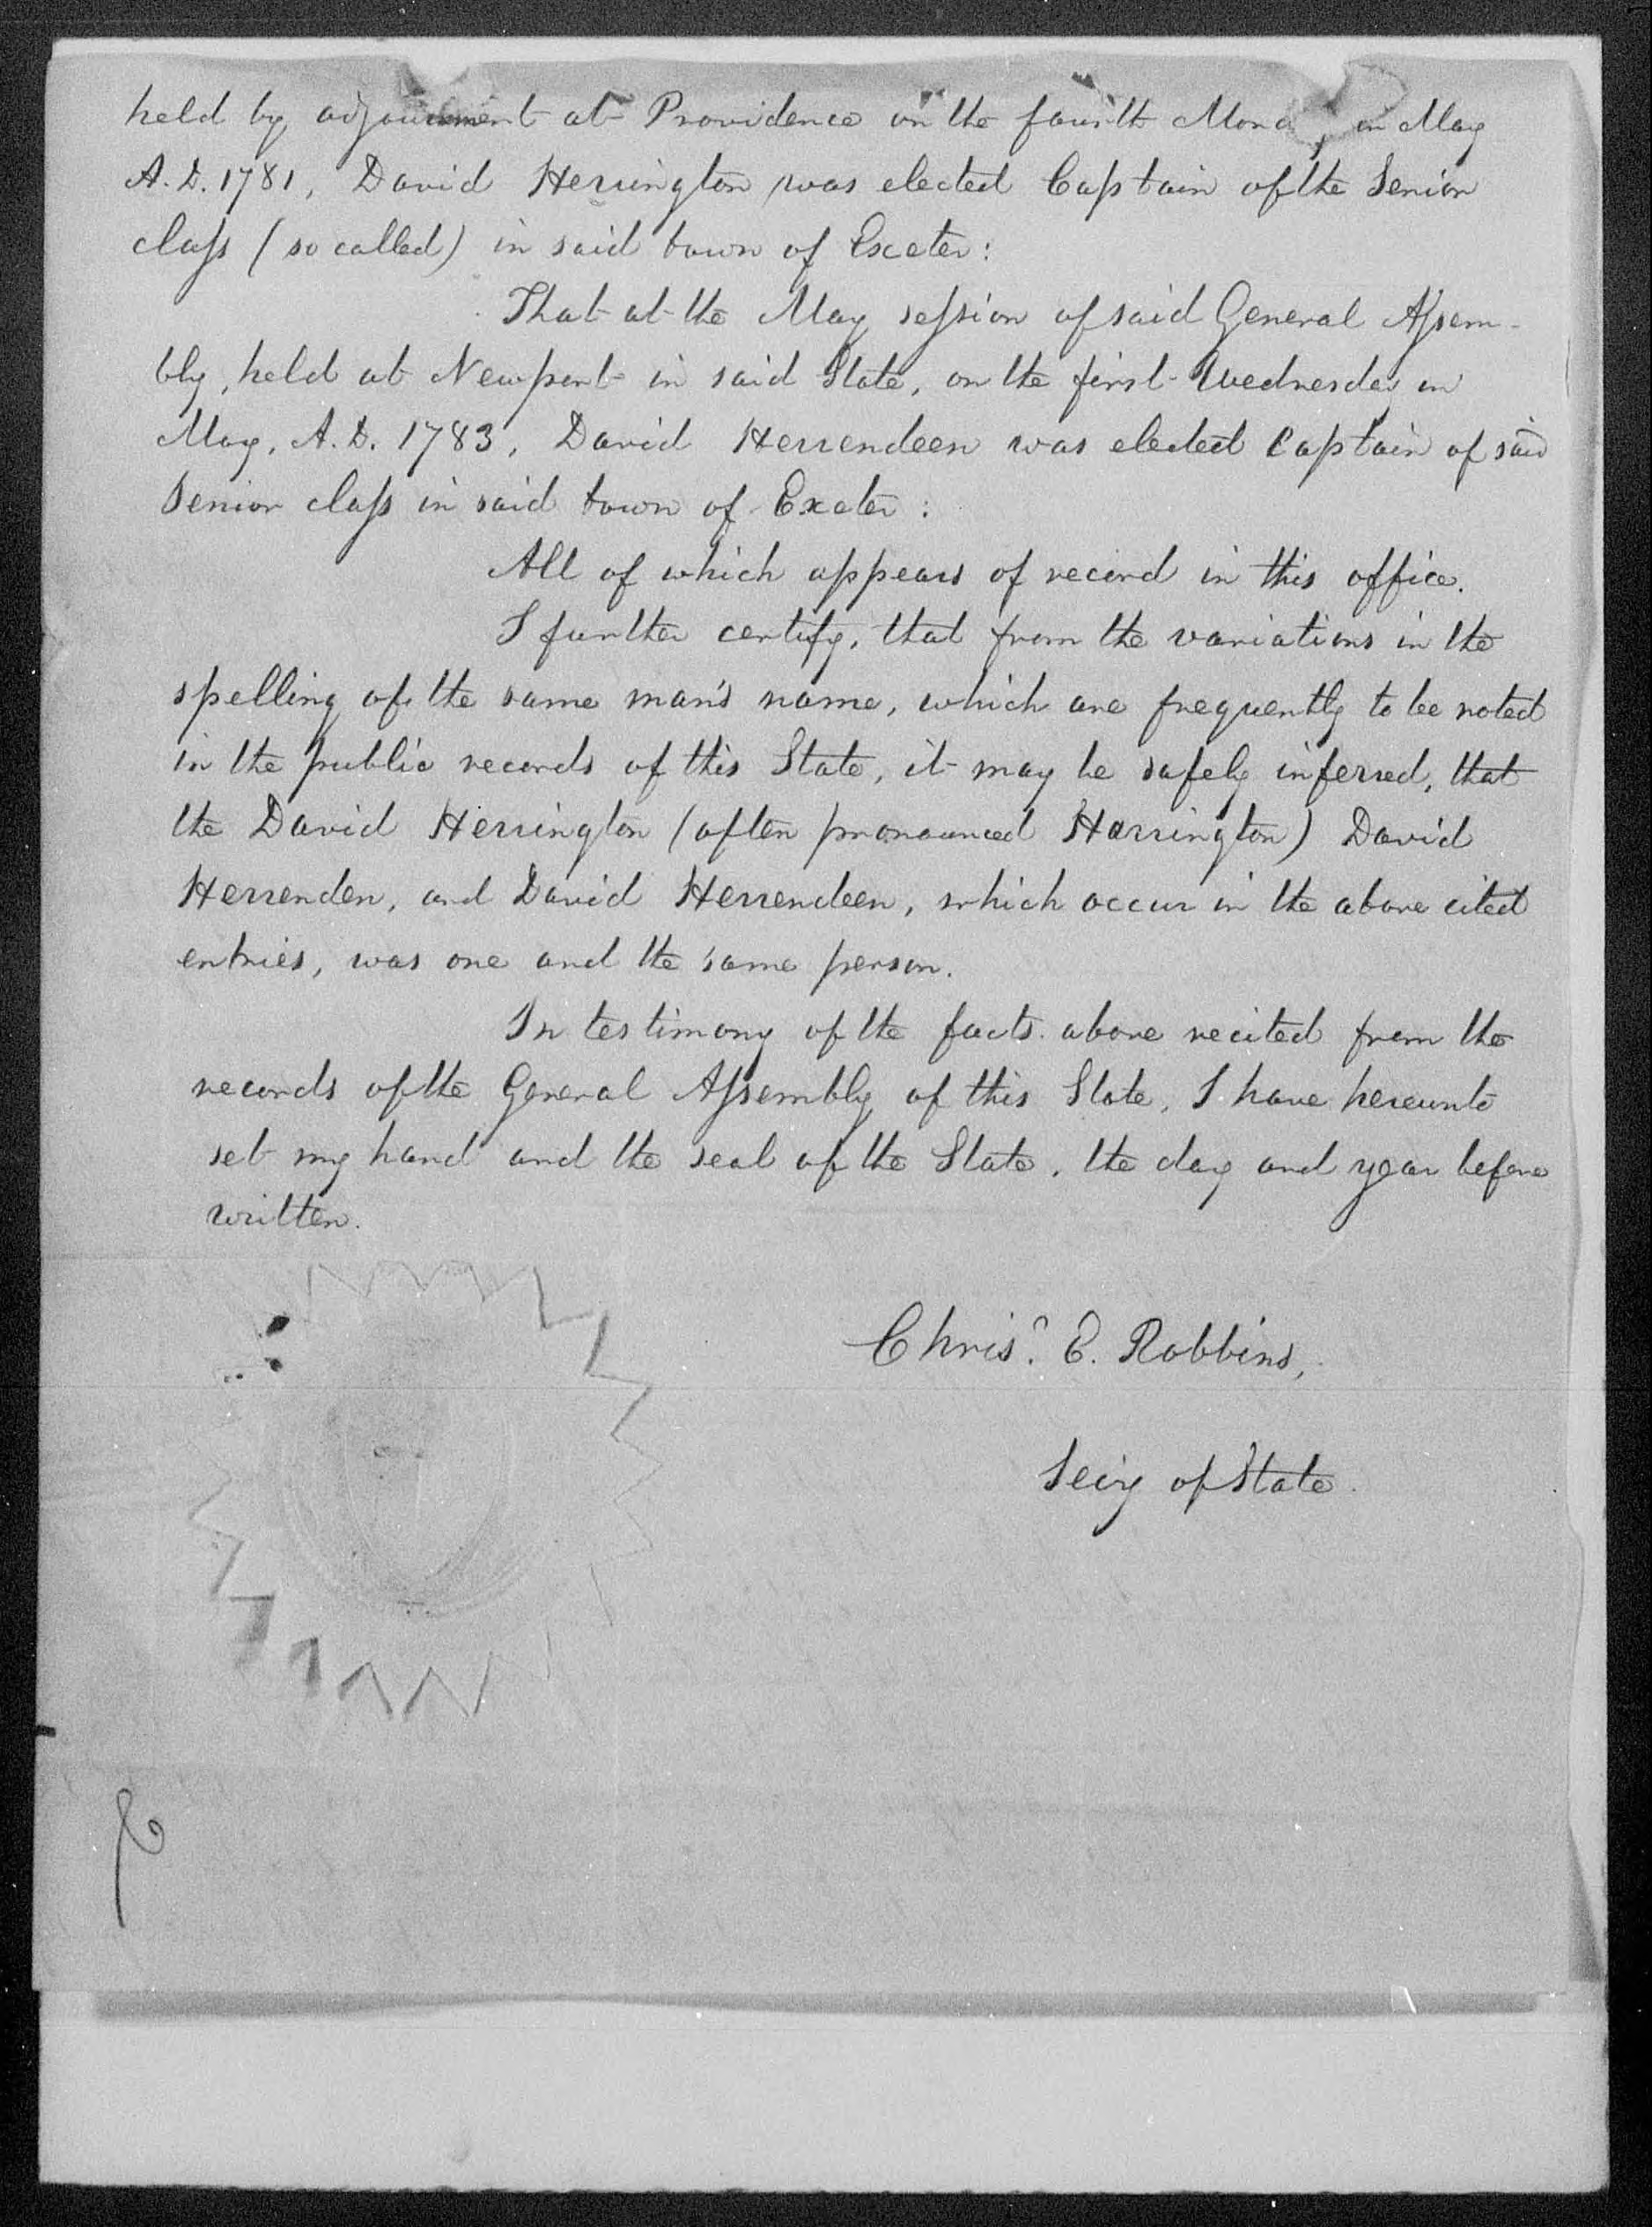 held by adjournment at Providence on the fourth Mond in May
A. D. 1781, David Herrington was elected Captain of the Senior
class (so called) in said town of Exeter:
That at the May session of said General Assem-
bly, held at Newport in said State, on the first Wednesday in
May, A. D. 1783, David Herrendeen was elected Captain of said
Senior class in said town of Exeter:
All of which appears of record in this office.
I further certify, that from the variations in the
spelling of the same man's name, which are frequently to be noted
in the public records of this State, it may be safely inferred, that
the David Herrington (often pronounced Harrington) David
Herrenden, and David Herrendeen, which occur in the above cited
entries, was one and the same person.
In testimony of the facts above recited from the
records of the General Assembly of this State, I have hereunto
set my hand and the seal of the State, the day and year before
written.
Chris. E. Robbins,
Secy of State.